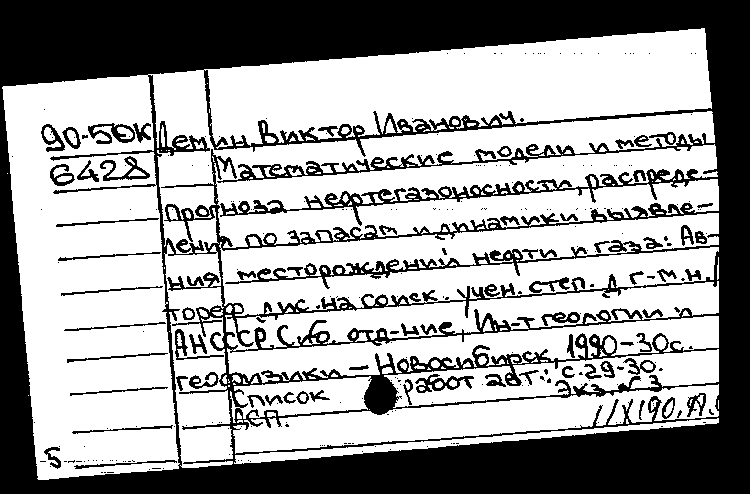 90-5ДК Демин, Виктор Иванович.
6428 Математические модели и методы
прогноза нефтегазоносности, распреде-
ления по запасам и динамики выявле-
ния месторождений нефти и газа: Ав-
тореф дис. на соиск. учен. степ. д г-м.н./
АН СССР. Сиб. отд-ние, Ин-т геологии и
геофизики - Новосибирск, 1990-30с.
Список работ авт.: с.29-30.
ДСП. Экз. № 3.
1/X190.
5